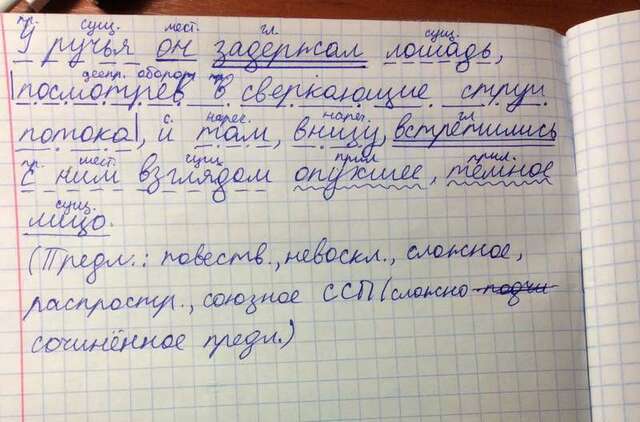 пр. сущ. мест. гл. сущ.
У ручья он задержал лошадь,
дееприч. оборот пр.
|посмотрев в сверкающие струи
с. нареч. нареч. гл.
потока|, и там, внизу, встретились
пр. мест. сущ. прил. прил.
с ним взглядом опухшее, тёмное
сущ.
лицо.
(Предл.: повеств., невоскл., сложное,
распростр., союзное ССП (сложно-подчи
сочинённое предл.)